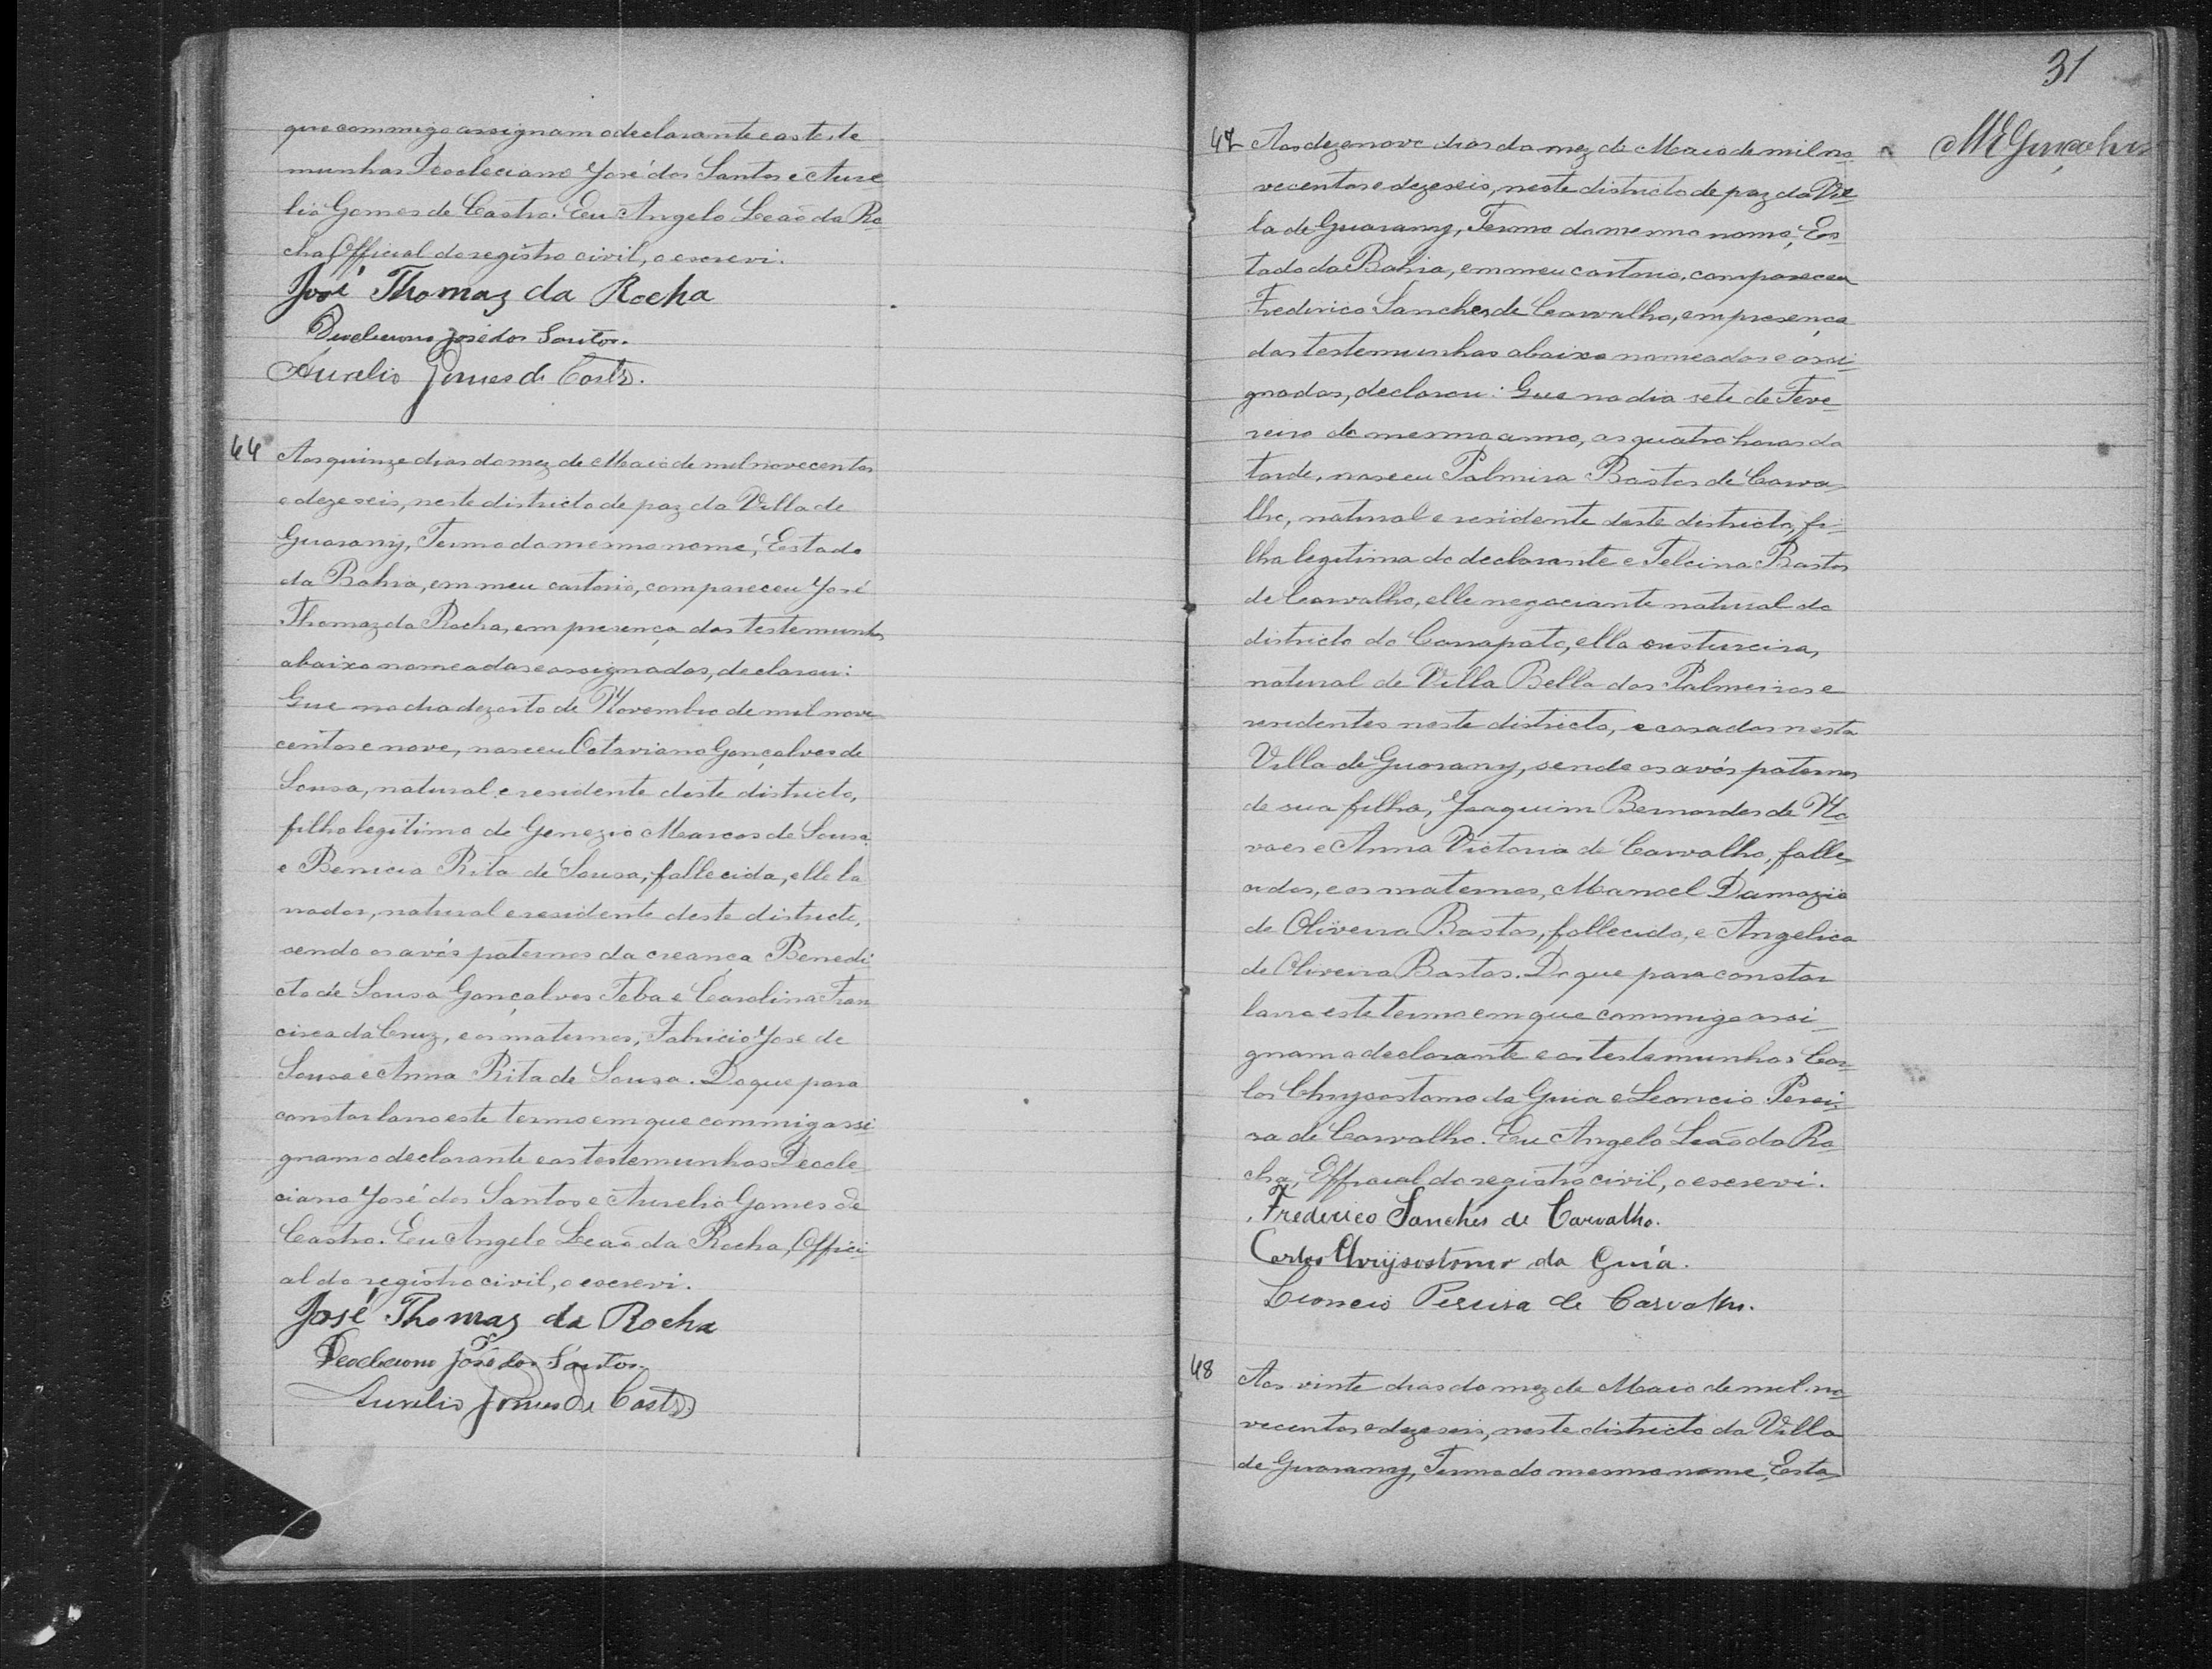 que commigo assignam o declarante e as teste
munhas Deocleciano José dos Santos e Aure
lio Gomes de Castro. Eu Angelo Leaõ da Ro
cha, Official do registro civil, o escrevi.
José Thomaz da Rocha
Deocleciano José dos Santos.
Aurelio Gomes de Castro.
44 Aos quinze dias do mez de Maio de mil novecentos
e dezeseis, neste districto de paz da Villa de
Guarany, Termo do mesmo nome, Estado
da Bahia, em meu cartorio, compareceu José
Thomaz da Rocha, em presença das testemunhas
abaixo nomeadas e assignadas, declarou:
Que no dia dezoito de Novembro de mil nove
centos e nove, nasceu Octaviano Gonçalves de
Sousa, natural e residente deste districto,
filho legitimo de Genezio Marcos de Sousa
e Benicia Rita de Sousa, fallecida, elle la
vrador, natural e residente deste districto,
sendo os avós paternos da creança Benedi
cto de Sousa Gonçalves Teba e Carolina Fran
cisca da Cruz, e os maternos, Fabricio José de
Sousa e Anna Rita de Sousa. Do que para
constar lavro este termo em que commigo assi
gnam o declarante e as testemunhas Deocle
ciano José dos Santos e Aurelio Gomes de
Castro. Eu Angelo Leaõ da Rocha, Offici
al do registro civil, o escrevi.
José Thomaz da Rocha
Deocleciano José dos Santos.
Aurelio Gomes de Castro
31
47 Aos dezenove dias do mez de Maio de mil no
vecentos e dezeseis, neste districto de paz da Vil
la de Guarany, Termo do mesmo nome, Es
tado da Bahia, em meu cartorio, compareceu
Frederico Sanches de Carvalho, em presença
das testemunhas abaixo nomeadas e assi
gnadas, declarou: Que no dia sete de Feve
reiro do mesmo anno, as quatro horas da
tarde, nasceu Palmira Bastos de Carva
lho, natural e residente deste districto, fi
lha legitima do declarante e Telcina Bastos
de Carvalho, elle negociante natural do
districto do Carrapato, ella custureira,
natural de Villa Bella das Palmeiras e
residentes neste districto, e casados nesta
Villa de Guarany, sendo os avós paternos
de sua filha, Joaquim Bernardes de No
vaes e Anna Victoria de Carvalho, falle
cidos, e os maternos, Manoel Damazio
de Oliveira Bastos, fallecido, e Angelica
de Oliveira Bastos. Do que para constar
lavro este termo em que commigo assi
gnam o declarante e as testemunhas Car
los Chrysostomo da Guia e Leoncio Perei
ra de Carvalho. Eu Angelo Leaõ da Ro
cha, Official do registro civil, o escrevi.
Frederico Sanches de Carvalho.
Carlos Chrysostomo da Guia.
Leoncio Pereira de Carvalho.
48 Aos vinte dias do mez de Maio de mil no
vecentos e dezeseis, neste districto da Villa
de Guarany, Termo do mesmo nome, Esta